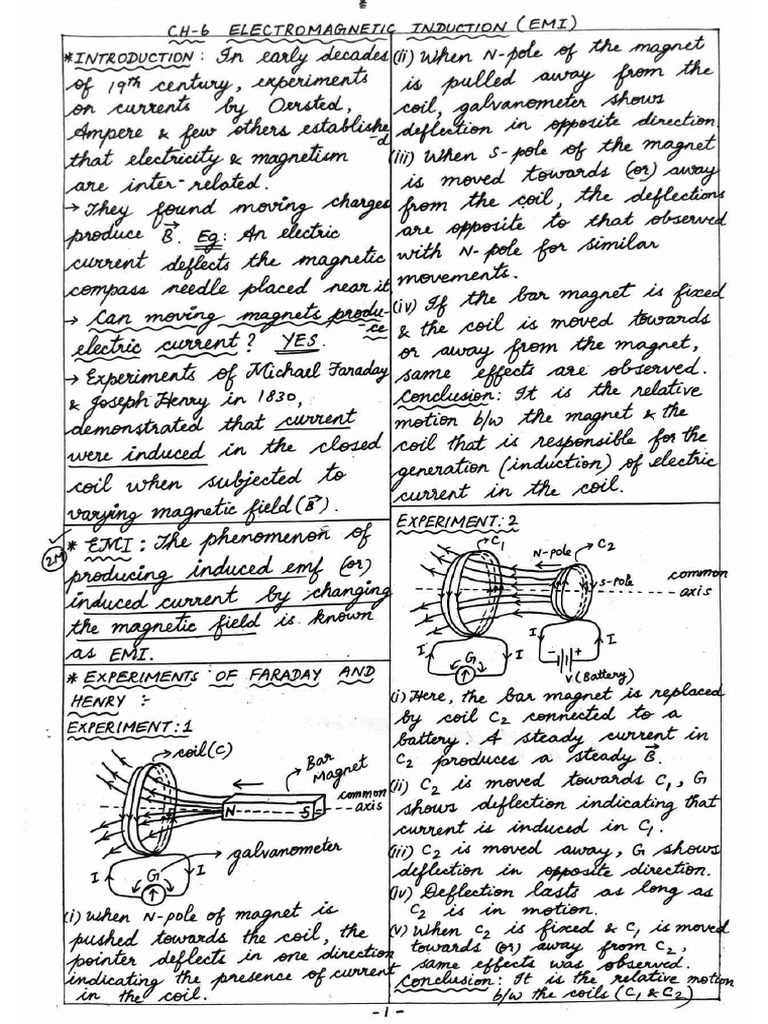 CH-6 ELECTROMAGNETIC INDUCTION (EMI)
* INTRODUCTION : In early decades
of 19th century, experiments
on currents by Oersted,
Ampere & few others established
that electricity & magnetism
are inter-related.
→ They found moving charges
produce B⃗. Eg: An electric
current deflects the magnetic
compass needle placed near it
→ Can moving magnets produce
electric current? YES.
→ Experiments of Michael Faraday
& Joseph Henry in 1830,
demonstrated that current
were induced in the closed
coil when subjected to
varying magnetic field (B⃗).
2M
* EMI : The phenomenon of
producing induced emf (or)
induced current by changing
the magnetic field is known
as EMI.
* EXPERIMENTS OF FARADAY AND
HENRY :-
EXPERIMENT:1
coil(C)
Bar
Magnet
N
S
common
axis
galvanometer
I
G
I
(i) When N-pole of magnet is
pushed towards the coil, the
pointer deflects in one direction
indicating the presence of current
in the coil.
(ii) When N-pole of the magnet
is pulled away from the
coil, galvanometer shows
deflection in opposite direction.
(iii) When S-pole of the magnet
is moved towards (or) away
from the coil, the deflections
are opposite to that observed
with N-pole for similar
movements.
(iv) If the bar magnet is fixed
& the coil is moved towards
or away from the magnet,
same effects are observed.
Conclusion: It is the relative
motion b/w the magnet & the
coil that is responsible for the
generation (induction) of electric
current in the coil.
EXPERIMENT:2
C1
N-pole
C2
S-pole
common
axis
I
G
I
I
- +
I
V(Battery)
(i) Here, the bar magnet is replaced
by coil C2 connected to a
battery. A steady current in
C2 produces a steady B⃗.
(ii) C2 is moved towards C1, G
shows deflection indicating that
current is induced in C1.
(iii) C2 is moved away, G shows
deflection in opposite direction.
(iv) Deflection lasts as long as
C2 is in motion.
(v) When C2 is fixed & C1 is moved
towards (or) away from C2,
same effects was observed.
Conclusion: It is the relative motion
b/w the coils (C1 & C2)
-1-